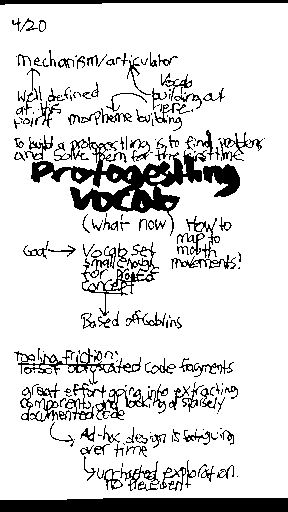 4/20
mechanism/articulator
Well defined
at this
point
Vocab
building out
here
morpheme building
To build a protogestling is to find problems
and solve them for the first time
Protogestling
Vocab
(what now)
How to
map to
mouth
movements?
Goal → Vocab set
small enough
for proof of
concept
Based off Goblins
tooling friction:
lots of obfuscated code fragments
great effort going into extracting
components and looking at sparsely
documented code
Ad-hoc design is fatiguing
over time
uncharted exploration.
no precedent